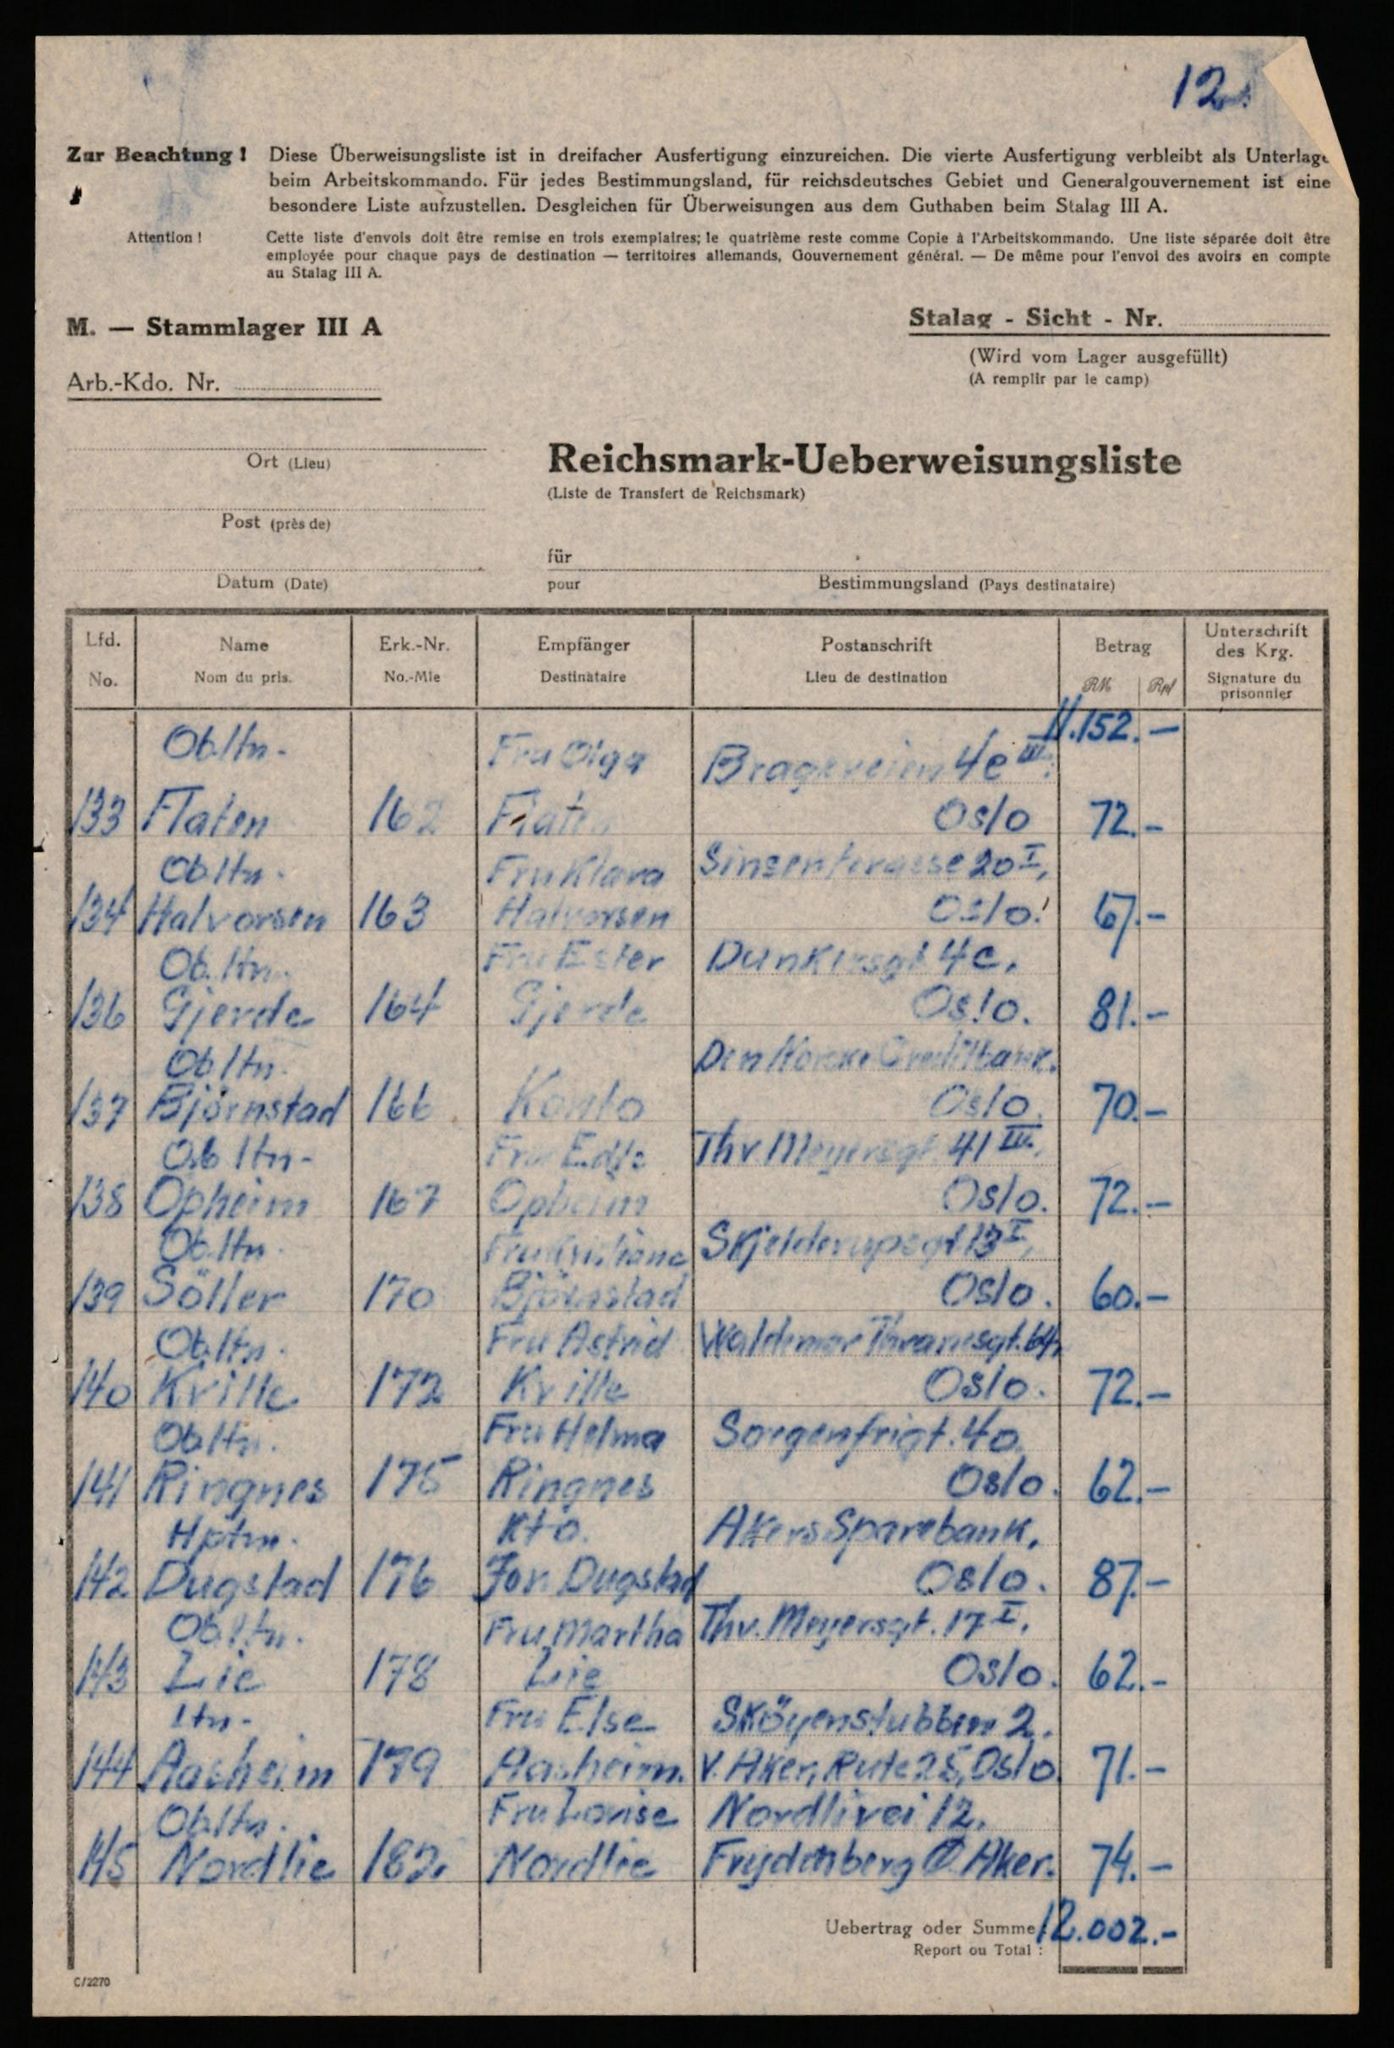 12.
Zur Beachtung ! Diese Überweisungsliste ist in dreifacher Ausfertigung einzureichen. Die vierte Ausfertigung verbleibt als Unterlage
beim Arbeitskommando. Für jedes Bestimmungsland, für reichsdeutsches Gebiet und Generalgouvernement ist eine
besondere Liste aufzustellen. Desgleichen für Überweisungen aus dem Guthaben beim Stalag III A.
Attention ! Cette liste d'envois doit être remise en trois exemplaires; le quatrième reste comme Copie à l'Arbeitskommando. Une liste séparée doit être
employée pour chaque pays de destination — territoires allemands, Gouvernement général. — De même pour l'envoi des avoirs en compte
au Stalag III A.
M. — Stammlager III A
Stalag - Sicht - Nr.
(Wird vom Lager ausgefüllt)
(A remplir par le camp)
Arb.-Kdo. Nr.
Ort (Lieu)
Post (près de)
Datum (Date)
Reichsmark-Ueberweisungsliste
(Liste de Transfert de Reichsmark)
für
pour Bestimmungsland (Pays destinataire)
Lfd. Name Erk.-Nr. Empfänger Postanschrift Betrag Unterschrift des Krg.
No. Nom du pris. No.-Mle Destinataire Lieu de destination RM Rpf Signature du prisonnier
11.152.-
Obltn. Fru Olga Brageveien 4e III.
133 Flaten 162 Flaten Oslo 72.-
Obltn. Fru Klara Sinsenterasse 20 I,
134 Halvorsen 163 Halvorsen Oslo. 67.-
Obltn. Fru Ester Dunkersgt 4c,
136 Gjerde 164 Gjerde Oslo. 81.-
Obltn. Den Norske Creditbank.
137 Björnstad 166 Konto Oslo. 70.-
Obltn. Fru Thv. Meyersgt. 41
138 Opheim 167 Opheim Oslo. 72.-
Obltn. Fru Kristiane Skjelderupsgt 13 I,
139 Söller 170 Björnstad Oslo. 60.-
Obltn. Fru Astrid Waldemar Thranesgt. 64,
140 Kville 172 Kville Oslo. 72.-
Obltn. Fru Helma Sorgenfrigt. 40
141 Ringnes 175 Ringnes Oslo. 62.-
Hptm. Kto. Akers Sparebank,
142 Dugstad 176 Jon Dugstad Oslo. 87.-
Obltn. Fru Martha Thv. Meyersgt. 17 I.
143 Lie 178 Lie Oslo. 62.-
ltn. Fru Else Sköyenstubben 2.
144 Aasheim 179 Aasheim. V. Aker, Rute 25, Oslo. 71.-
Obltn. Fru Lovise Nordlivei 12.
145 Nordlie 182. Nordlie Frydenberg Ø. Aker. 74.-
Uebertrag oder Summe: 12.002.-
Report ou Total :
C/2270